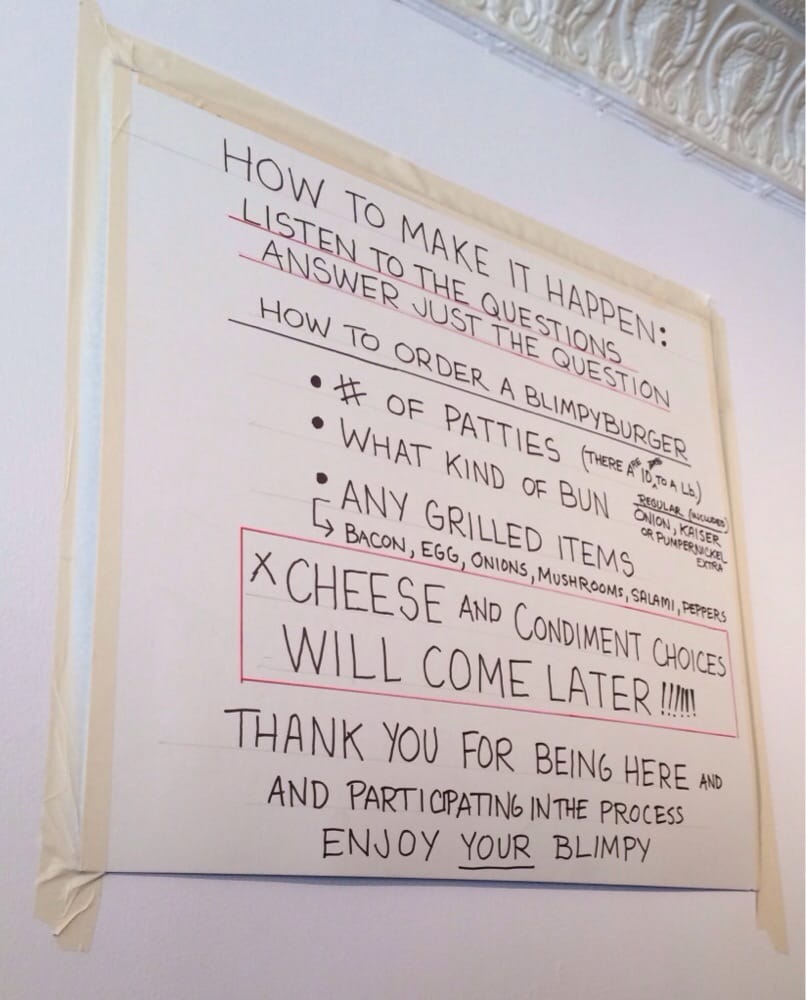 HOW TO MAKE IT HAPPEN:
LISTEN TO THE QUESTIONS
ANSWER JUST THE QUESTION
HOW TO ORDER A BLIMPYBURGER
• # OF PATTIES (THERE ARE 10 TO A Lb.)
• WHAT KIND OF BUN REGULAR (INCLUDED)
ONION, KAISER
OR PUMPERNICKEL
EXTRA
• ANY GRILLED ITEMS
↳ BACON, EGG, ONIONS, MUSHROOMS, SALAMI, PEPPERS
X CHEESE AND CONDIMENT CHOICES
WILL COME LATER !!!!!!
THANK YOU FOR BEING HERE AND
AND PARTICIPATING IN THE PROCESS
ENJOY YOUR BLIMPY